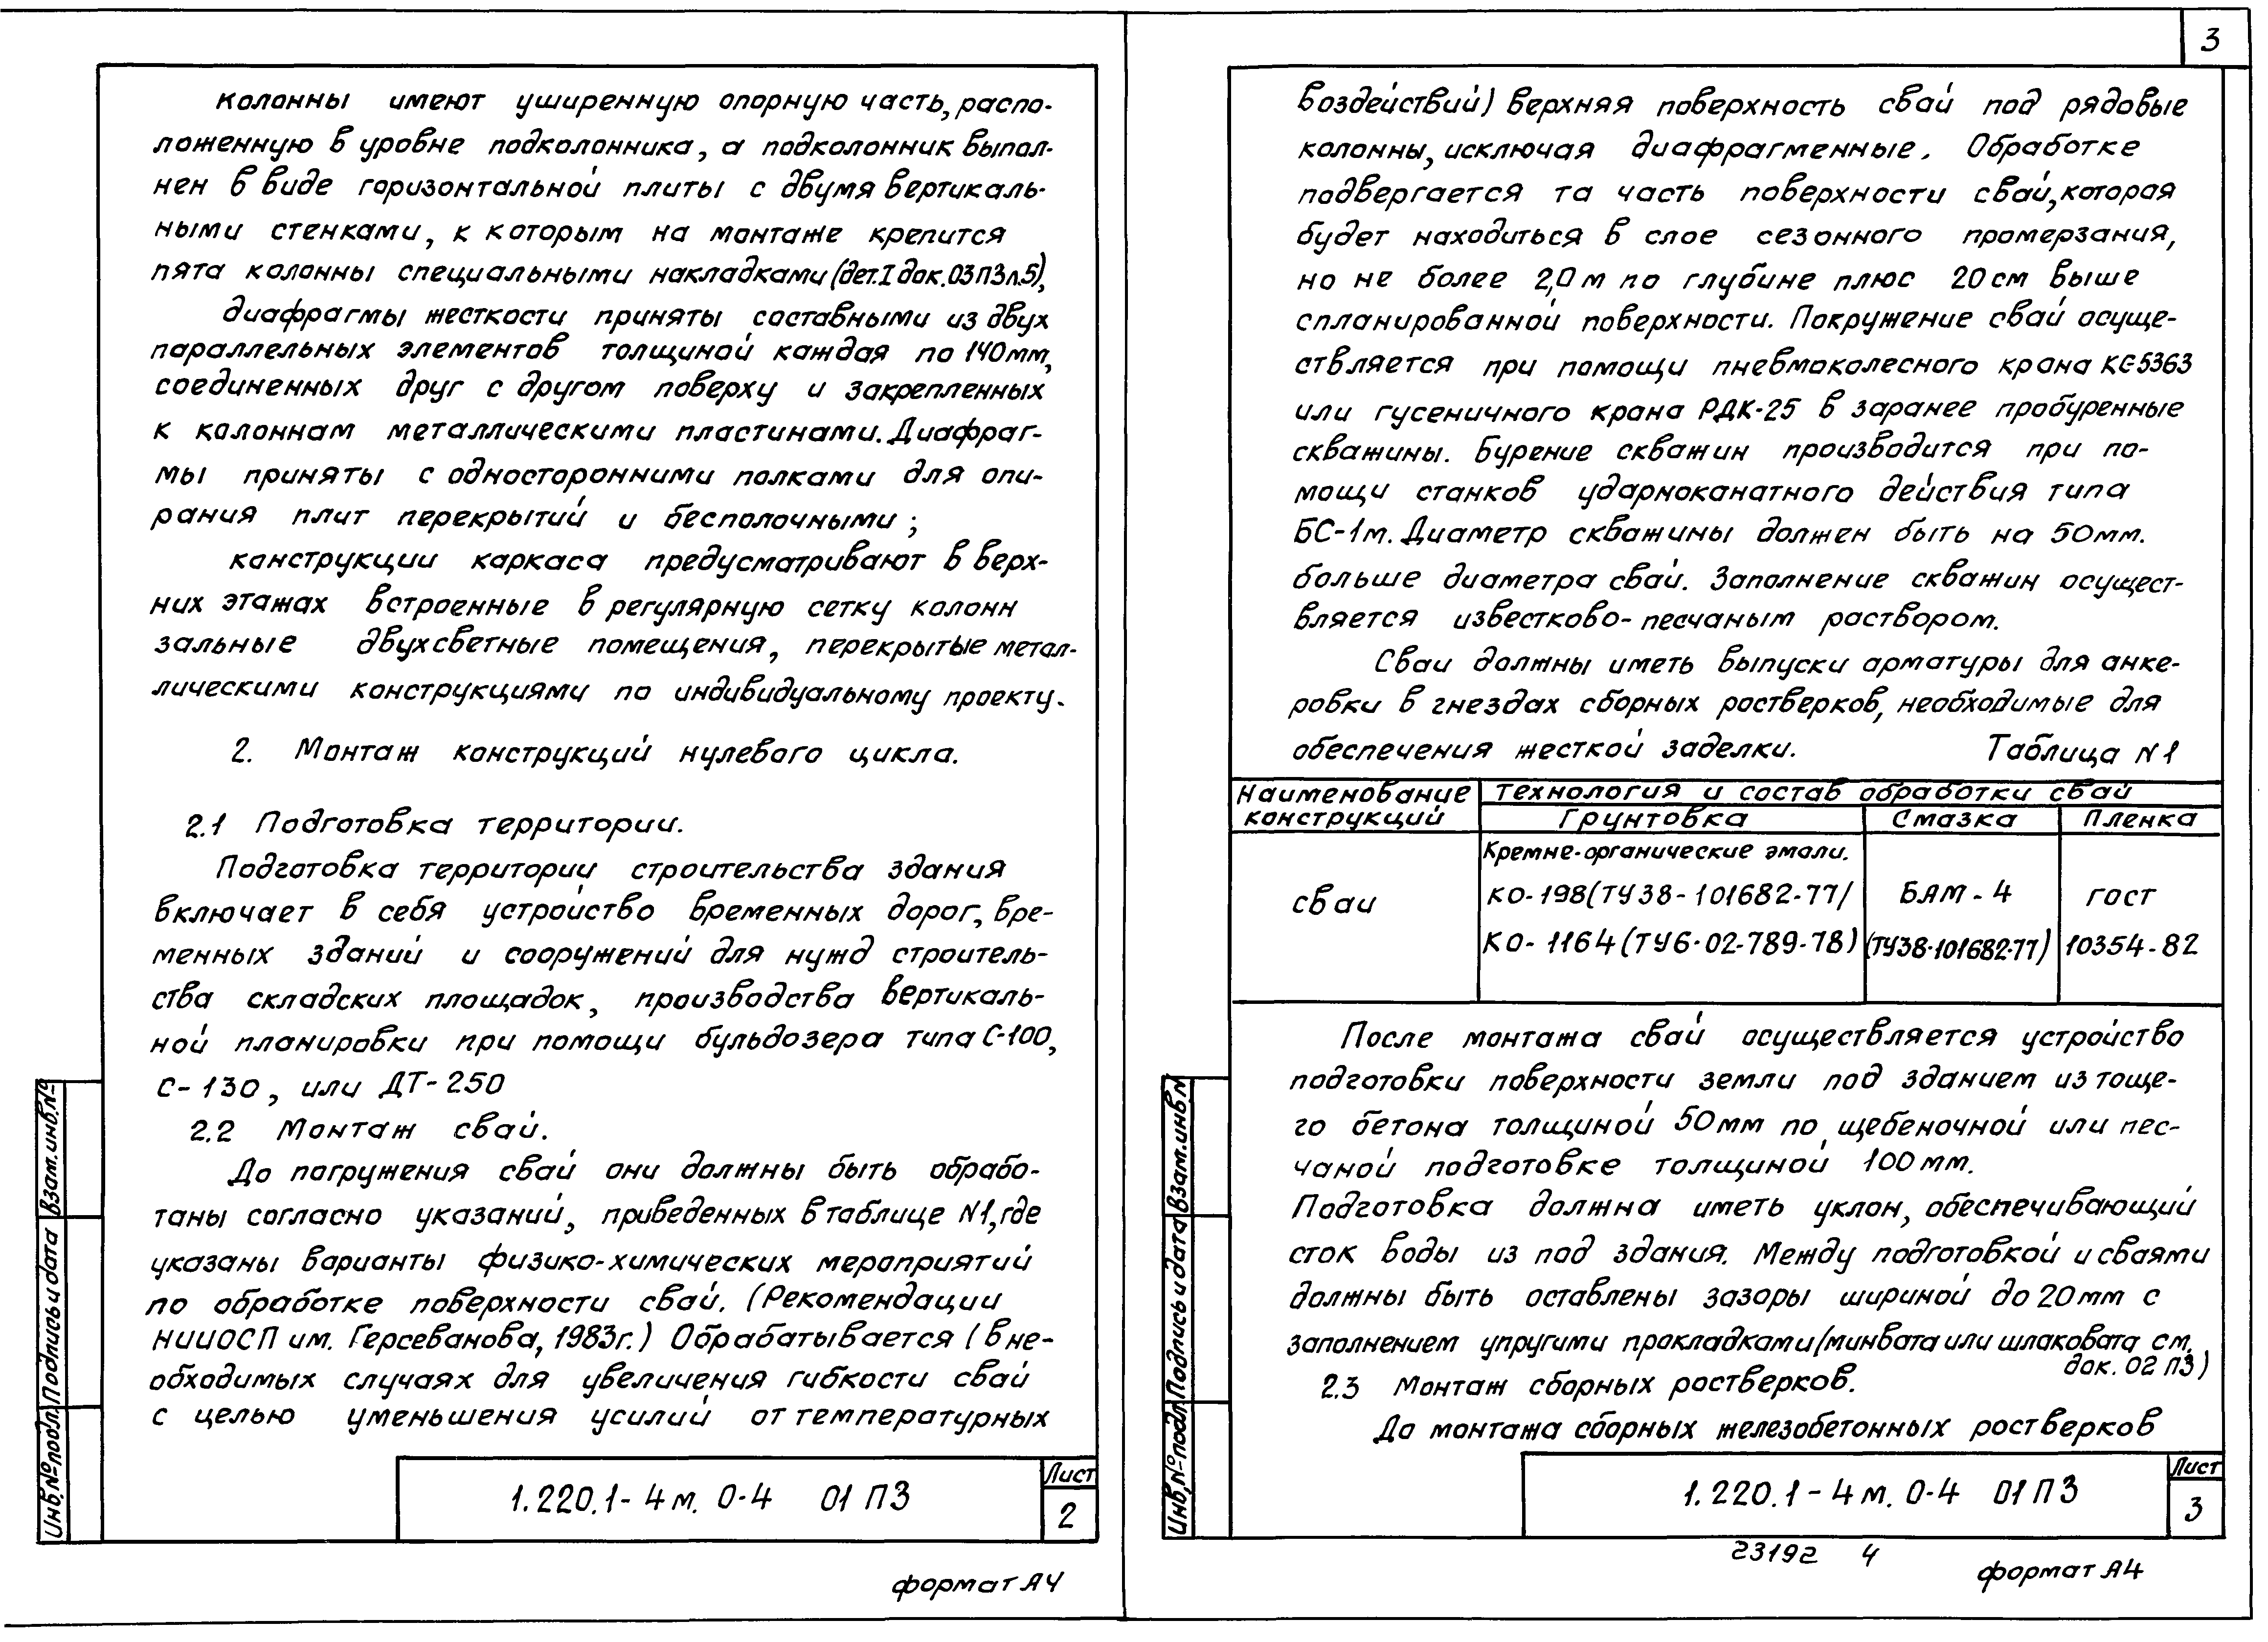 колонны имеют уширенную опорную часть, распо-
ложенную в уровне подколонника, а подколонник выпол-
нен в виде горизонтальной плиты с двумя вертикаль-
ными стенками, к которым на монтаже крепится
пята колонны специальными накладками (дет. I док. 03ПЗ л.5),
диафрагмы жесткости приняты составными из двух
параллельных элементов толщиной каждая по 140мм,
соединенных друг с другом поверху и закрепленных
к колоннам металлическими пластинами. Диафраг-
мы приняты с односторонними полками для опи-
рания плит перекрытий и бесполочными;
конструкции каркаса предусматривают в верх-
них этажах встроенные в регулярную сетку колонн
зальные двухсветные помещения, перекрытые метал-
лическими конструкциями по индивидуальному проекту.
2. Монтаж конструкций нулевого цикла.
2.1 Подготовка территории.
Подготовка территории строительства здания
включает в себя устройство временных дорог, вре-
менных зданий и сооружений для нужд строитель-
ства складских площадок, производства вертикаль-
ной планировки при помощи бульдозера типа С-100,
С-130, или ДТ-250
2.2 Монтаж свай.
До погружения свай они должны быть обрабо-
таны согласно указаний, приведенных в таблице N1, где
указаны варианты физико-химических мероприятий
по обработке поверхности свай. (Рекомендации
НИИОСП им. Герсеванова, 1983г.) Обрабатывается (в не-
обходимых случаях для увеличения гибкости свай
с целью уменьшения усилий от температурных
Взам. инв. №
Подпись и дата
Инв. № подл.
1.220.1-4м. 0-4 01 ПЗ
Лист
2
формат А4
3
воздействий) верхняя поверхность свай под рядовые
колонны, исключая диафрагменные. Обработке
подвергается та часть поверхности свай, которая
будет находиться в слое сезонного промерзания,
но не более 2,0м по глубине плюс 20см выше
спланированной поверхности. Покружение свай осуще-
ствляется при помощи пневмоколесного крана КС-5363
или гусеничного крана РДК-25 в заранее пробуренные
скважины. Бурение скважин производится при по-
мощи станков ударноканатного действия типа
БС-1м. Диаметр скважины должен быть на 50мм.
больше диаметра свай. Заполнение скважин осущест-
вляется известково-песчаным раствором.
Сваи должны иметь выпуски арматуры для анке-
ровки в гнездах сборных ростверков, необходимые для
обеспечения жесткой заделки. Таблица N1
Наименование конструкций
Технология и состав обработки свай
Грунтовка Смазка Пленка
Кремне-органические эмали.
сваи КО-198(ТУ38-101682-77/ БАМ-4 гост
КО-1164(ТУ6-02-789-78) (ТУ38-101682-77) 10354-82
После монтажа свай осуществляется устройство
подготовки поверхности земли под зданием из тоще-
го бетона толщиной 50мм по щебеночной или пес-
чаной подготовке толщиной 100мм.
Подготовка должна иметь уклон, обеспечивающий
сток воды из под здания. Между подготовкой и сваями
должны быть оставлены зазоры шириной до 20мм с
заполнением упругими прокладками/минвата или шлаковата см.
док. 02 ПЗ)
2.3 Монтаж сборных ростверков.
До монтажа сборных железобетонных ростверков
Взам. инв. №
Подпись и дата
Инв. № подл.
1.220.1-4м. 0-4 01 ПЗ
Лист
3
23192 4
формат А4